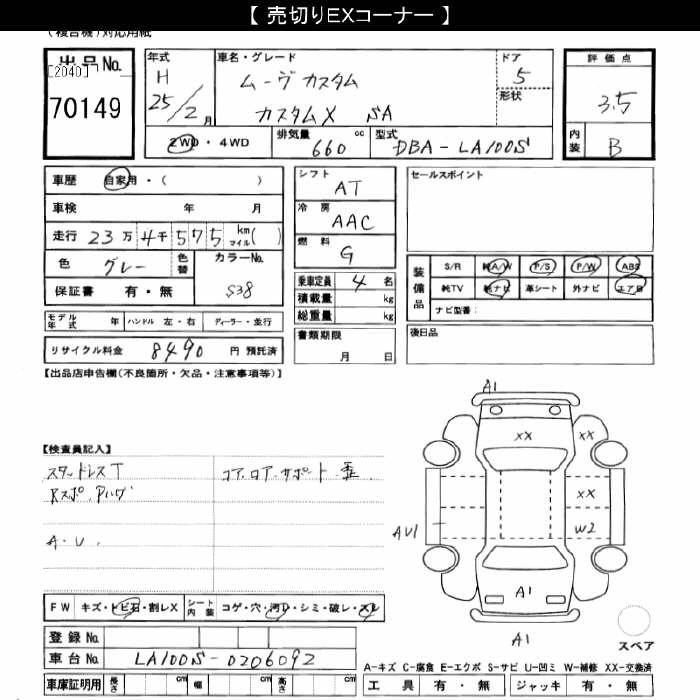 【 売切りEXコーナー 】
(複合機)対応用紙
出品No.
[2040]
70149
年式
H
25/2月
車名・グレード
ムーヴ カスタム
カスタムX SA
ドア
5
形状
評価点
3.5
内装
B
2WD・4WD
排気量 660 cc
型式 DBA-LA100S
車歴 自家用・( )
車検 年 月
走行 23万4千575 km マイル( )
色 グレー 色替 カラーNo. S38
保証書 有・無
モデル年式 年 ハンドル 左・右 ディーラー・並行
リサイクル料金 8490 円 預託済
シフト AT
冷房 AAC
燃料 G
乗車定員 4 名
積載量 kg
総重量 kg
書類期限
月 日
セールスポイント
装備品
S/R 純A/W P/S P/W ABS
純TV 純ナビ 革シート 外ナビ エアB
ナビ型番:
後日品
【出品店申告欄(不良箇所・欠品・注意事項等)】
【検査員記入】
スタッドレスT
コア.ロア.サポート 歪
Rスポ、Pハゲ
A.U.
A1
XX
XX
XX
AU1
W2
A1
A1
スペア
FW キズ・トビ石・割レX シート内装 コゲ・穴・汚レ・シミ・破レ・スレ
登録No.
車台No. LA100S-0206092
車庫証明用 長さ cm 幅 cm 高さ cm
A-キズ C-腐食 E-エクボ S-サビ U-凹ミ W-補修 XX-交換済
工具 有・無 ジャッキ 有・無